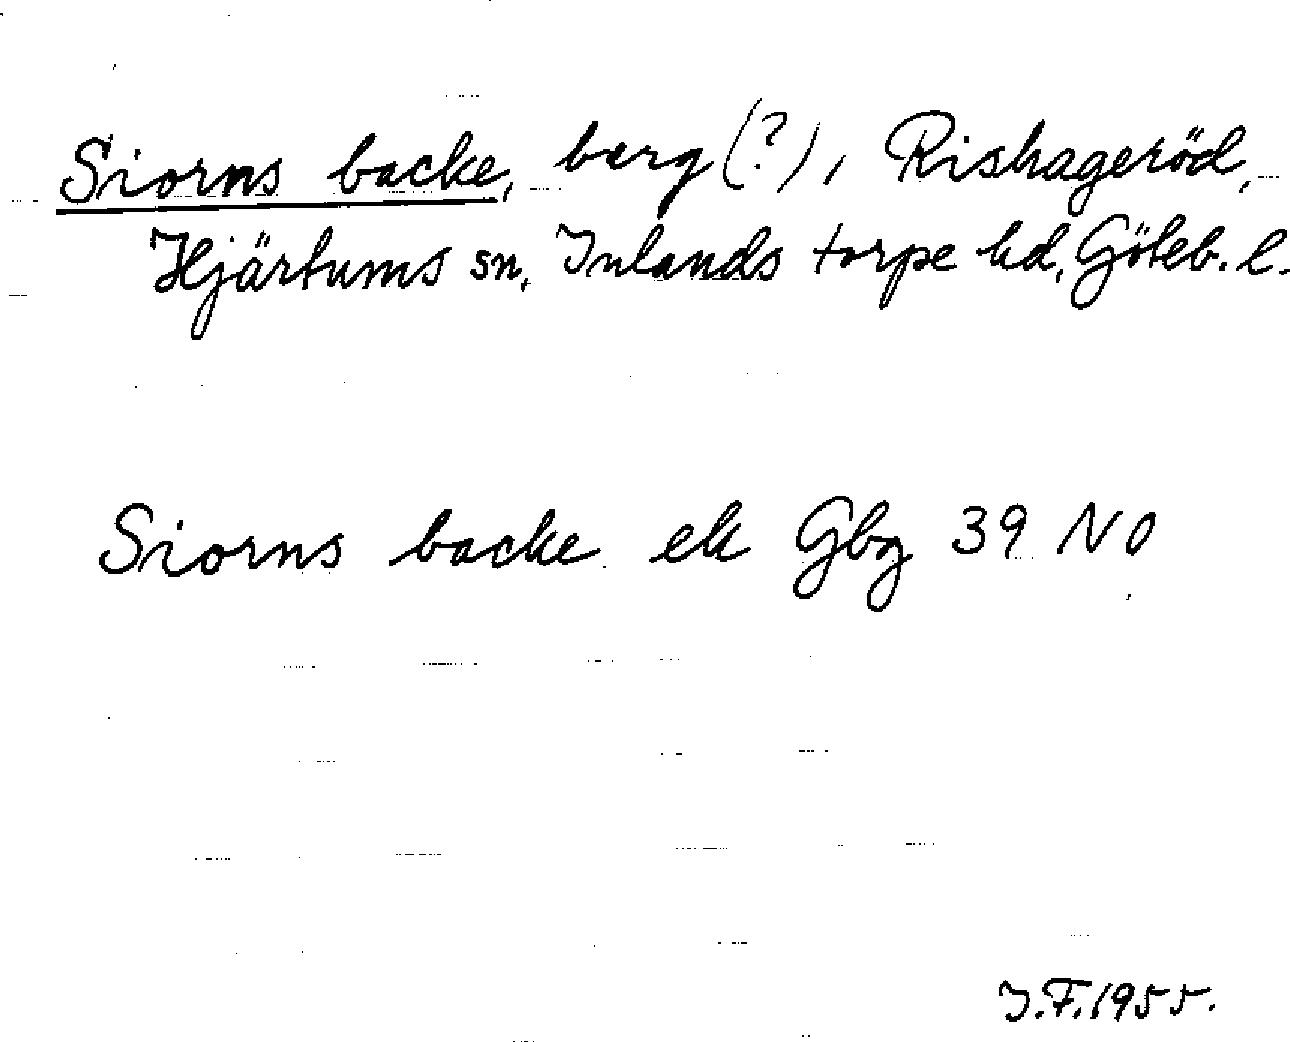 Siorns backe, berg (?), Rishageröd,
Hjärtums sn, Inlands torpe hd, Göteb. l.
Siorns backe ek Gbg 39 NO
J.F. 1955.